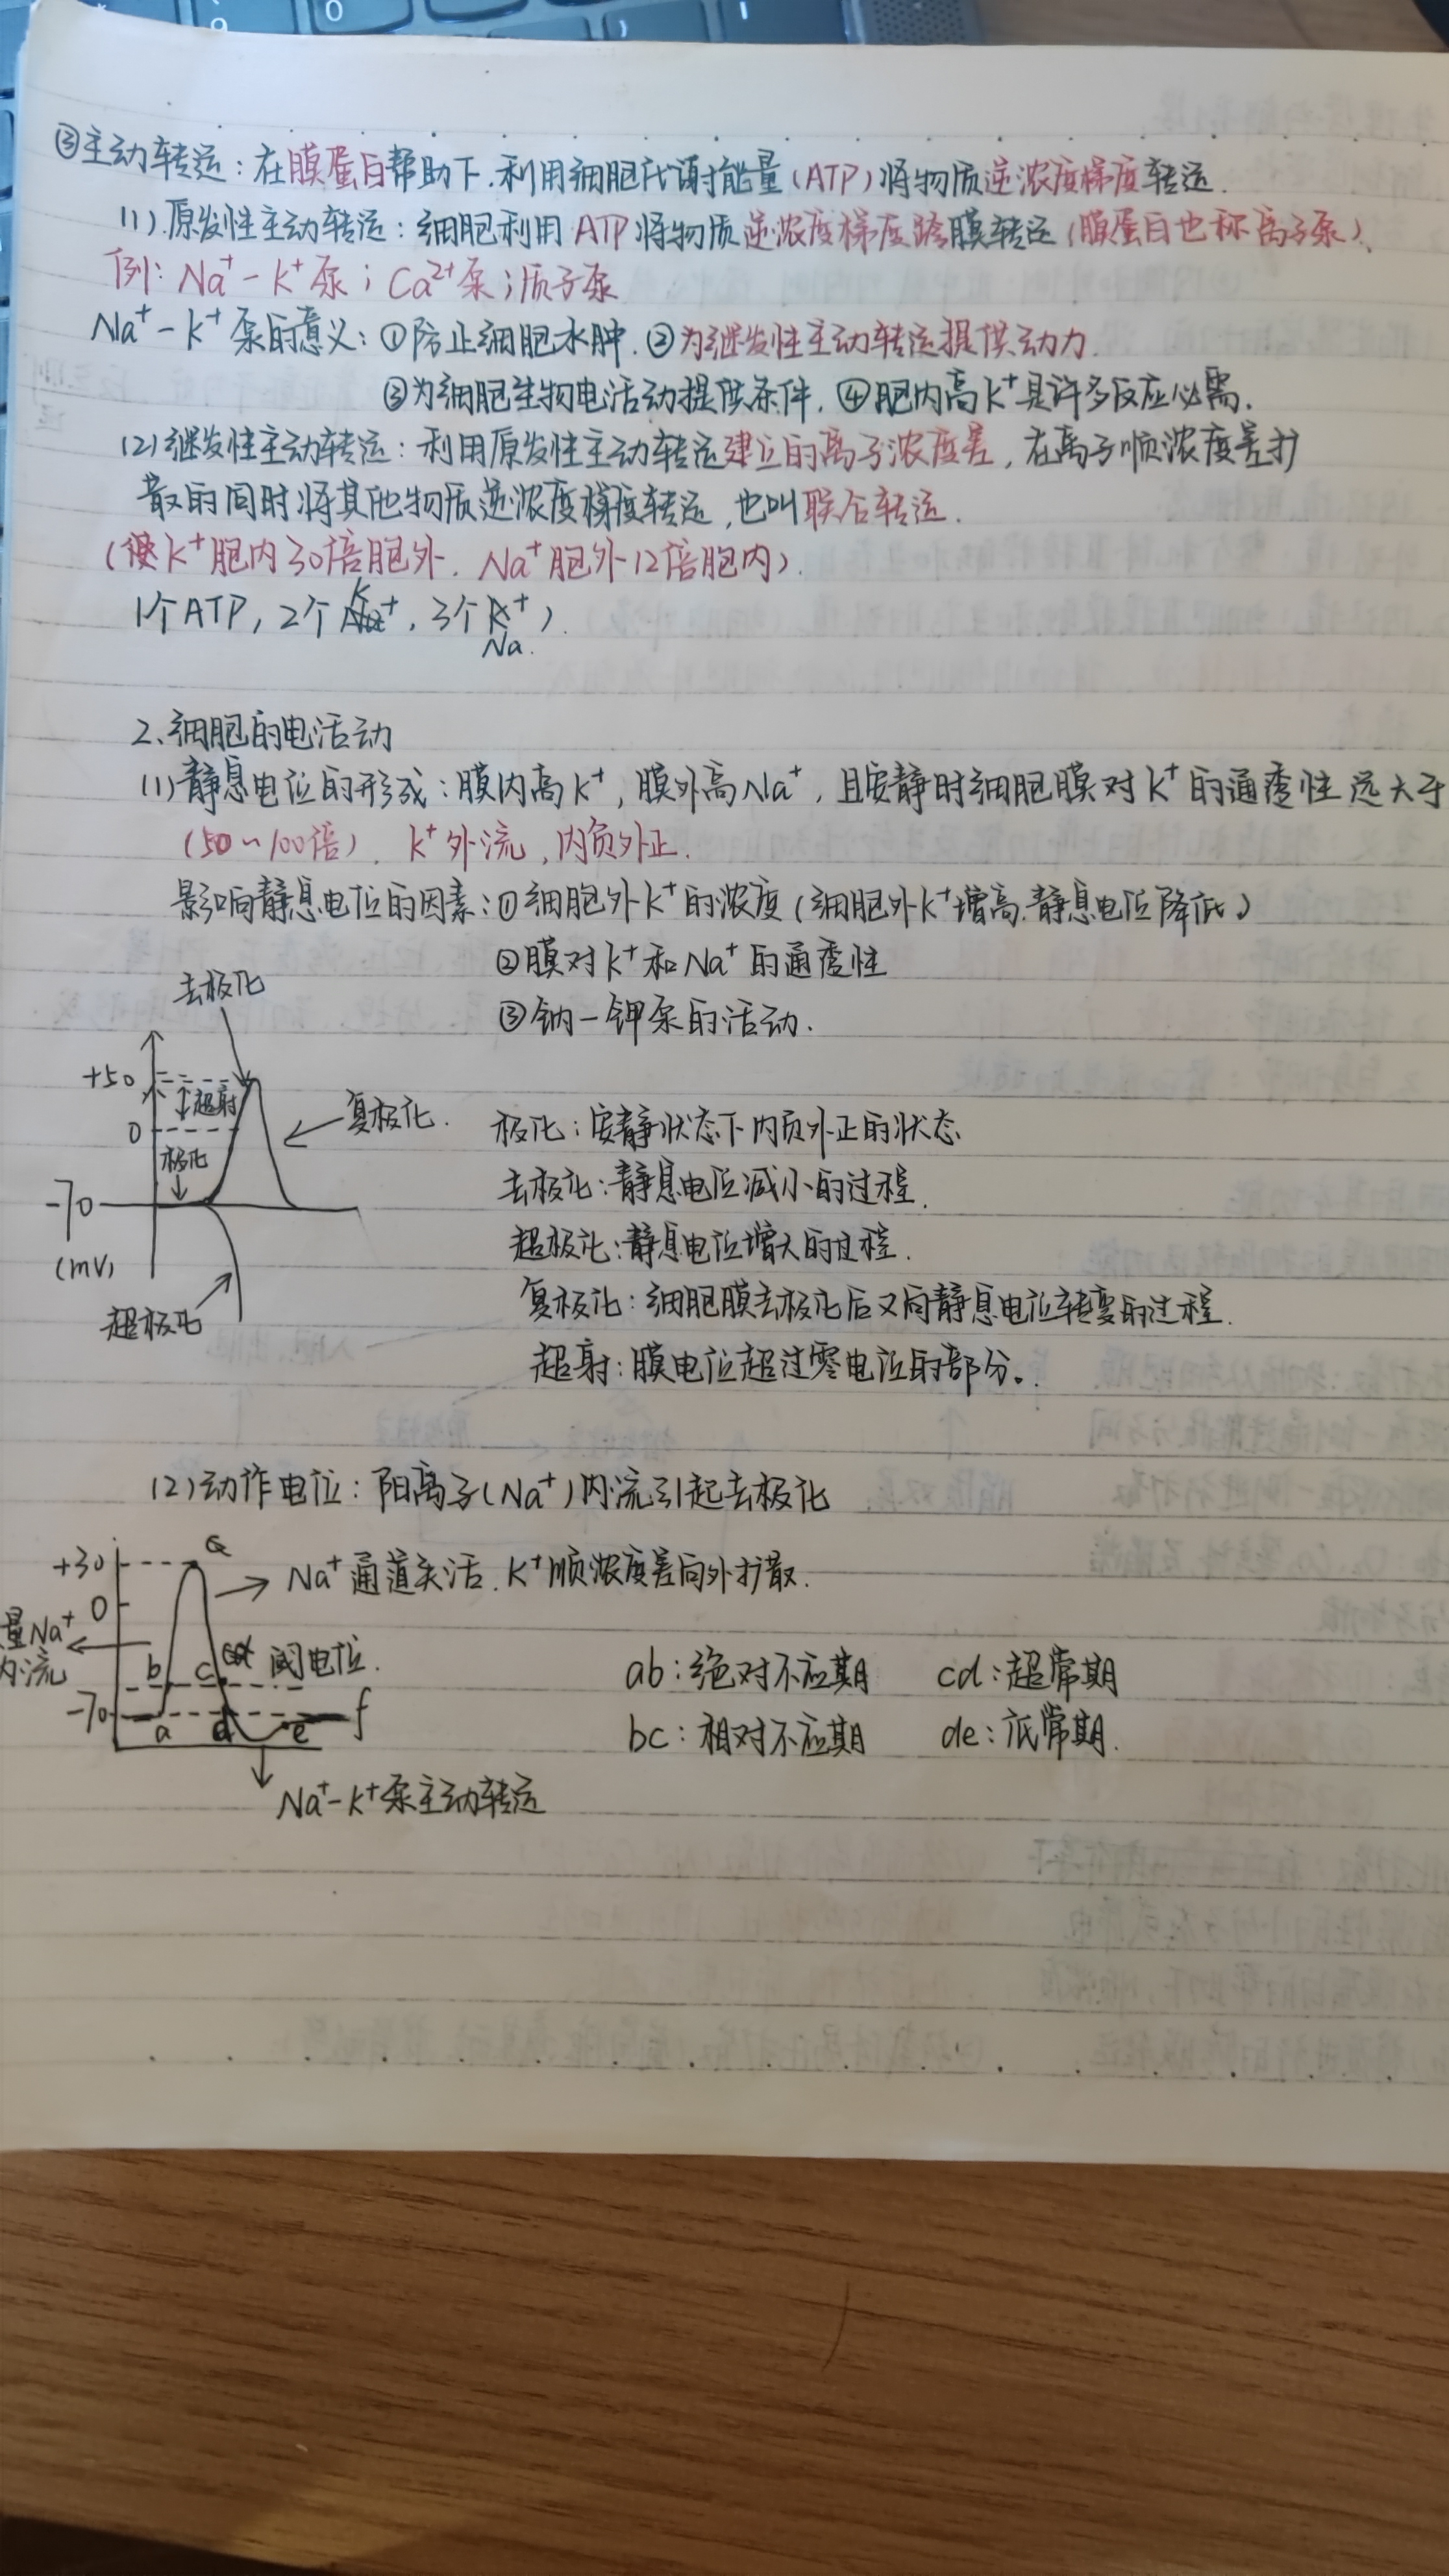 ③主动转运：在膜蛋白帮助下.利用细胞代谢能量(ATP)将物质逆浓度梯度转运.
(1).原发性主动转运：细胞利用ATP将物质逆浓度梯度跨膜转运(膜蛋白也称离子泵).
例：Na⁺-K⁺泵；Ca²⁺泵；质子泵
Na⁺-K⁺泵的意义：①防止细胞水肿.②为继发性主动转运提供动力.
③为细胞生物电活动提供条件.④胞内高K⁺是许多反应必需.
(2)继发性主动转运：利用原发性主动转运建立的离子浓度差,在离子顺浓度差扩
散的同时将其他物质逆浓度梯度转运,也叫联合转运.
(使K⁺胞内30倍胞外.Na⁺胞外12倍胞内).
1个ATP,2个K⁺,3个Na⁺).
2.细胞的电活动
(1)静息电位的形成：膜内高K⁺,膜外高Na⁺,且安静时细胞膜对K⁺的通透性远大于
(50~100倍).K⁺外流,内负外正.
影响静息电位的因素：①细胞外K⁺的浓度(细胞外K⁺增高.静息电位降低)
②膜对K⁺和Na⁺的通透性
③钠-钾泵的活动.
去极化
+50
超射
0
极化
复极化.
-70
(mV)
超极化
极化：安静状态下内负外正的状态
去极化：静息电位减小的过程.
超极化：静息电位增大的过程.
复极化：细胞膜去极化后又向静息电位转变的过程.
超射：膜电位超过零电位的部分。
(2)动作电位：阳离子(Na⁺)内流引起去极化
+30
Na⁺通道失活.K⁺顺浓度差向外扩散.
0
量Na⁺
内流
b c 阈电位.
-70 a d e f
Na⁺-K⁺泵主动转运
ab：绝对不应期 cd：超常期
bc：相对不应期 de：低常期.